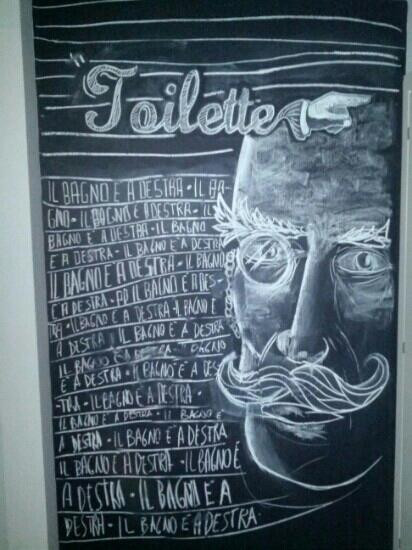 "Toilette
IL BAGNO E A DESTRA • IL BA-
GNO • IL BAGNO E A DESTRA • IL
BAGNO E A DESTRA • IL BAGNO
E A DESTRA • IL BAGNO E A DESTRA
IL BAGNO E A DESTRA • IL BAGNO
E A DESTRA • IL BAGNO E A DES-
TRA • IL BAGNO E A DESTRA • IL BAGNO E
A DESTRA • IL BAGNO E' A DESTRA
IL BAGNO E' A DESTRA • BAGNO
E A DESTRA • IL BAGNO E' A DES
-TRA • IL BAGNO E A DESTRA •
IL BAGNO E A DESTRA • IL BAGNO E'
A DESTRA • IL BAGNO E' A DESTRA
IL BAGNO E A DESTRA • IL BAGNO E'
A DESTRA • IL BAGNA E' A
DESTRA • IL BAGNO E' A DESTRA •